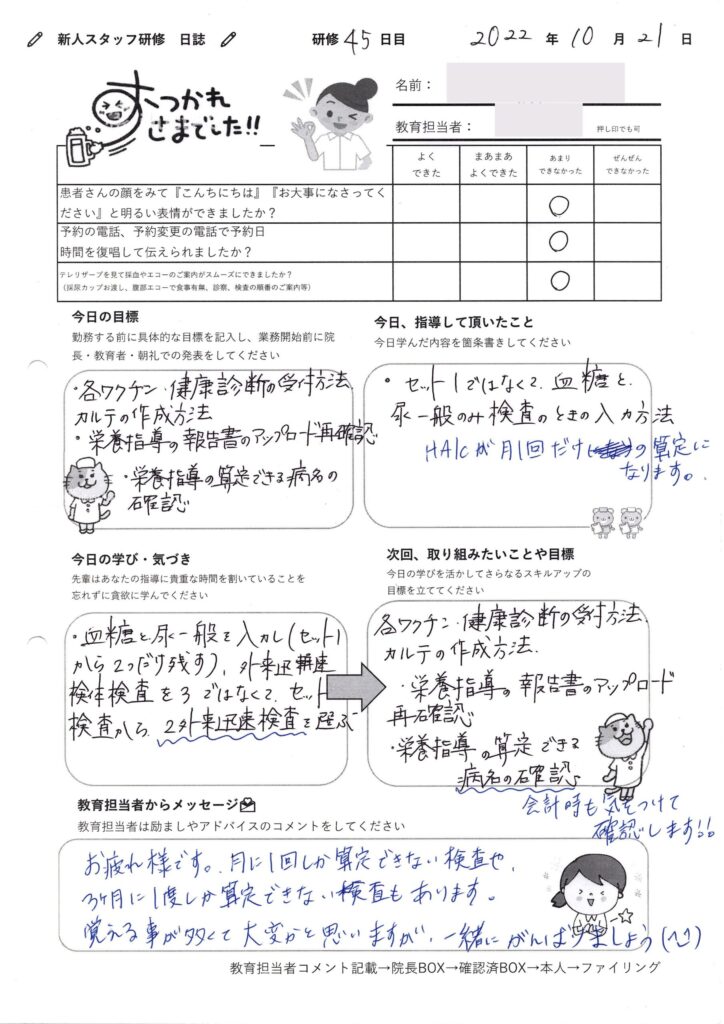 新人スタッフ研修 日誌
研修 45 日目
2022 年 10 月 21 日
おつかれ
さまでした!!
名前：
教育担当者：
押し印でも可
よく
できた
まあまあ
よくできた
あまり
できなかった
ぜんぜん
できなかった
患者さんの顔をみて『こんちにちは』『お大事になさってく
ださい』と明るい表情ができましたか？
○
予約の電話、予約変更の電話で予約日
時間を復唱して伝えられましたか？
○
テレリザーブを見て採血やエコーのご案内がスムーズにできましたか？
（採尿カップお渡し、腹部エコーで食事有無、診察、検査の順番のご案内等）
○
今日の目標
勤務する前に具体的な目標を記入し、業務開始前に院
長・教育者・朝礼での発表をしてください
・各ワクチン・健康診断の受付方法、
カルテの作成方法
・栄養指導の報告書のアップロード再確認
・栄養指導の算定できる病名の
確認
今日、指導して頂いたこと
今日学んだ内容を箇条書きしてください
・セット1ではなくて、血糖と、
尿一般のみ検査のときの入力方法
HA1Cが月1回だけの算定に
なります。
今日の学び・気づき
先輩はあなたの指導に貴重な時間を割いていることを
忘れずに貪欲に学んでください
・血糖と尿一般を入力し(セット1
から2つだけ残す)、外来迅速
検体検査を3ではなくて、セット
検査から、2外来迅速検査を選ぶ
次回、取り組みたいことや目標
今日の学びを活かしてさらなるスキルアップの
目標を立ててください
各ワクチン・健康診断の受付方法、
カルテの作成方法、
・栄養指導の報告書のアップロード
再確認
・栄養指導の算定できる
病名の確認
会計時も気をつけて
確認します!!
教育担当者からメッセージ
教育担当者は励ましやアドバイスのコメントをしてください
お疲れ様です。月に1回しか算定できない検査や、
3ヶ月に1度しか算定できない検査もあります。
覚える事が多くて大変かと思いますが、一緒にがんばりましょう(^^)
教育担当者コメント記載→院長BOX→確認済BOX→本人→ファイリング